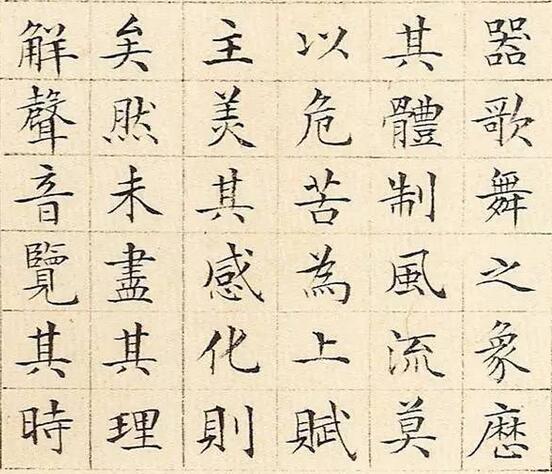 器歌舞之象歷
其體制風流莫
以危苦為上賦
主美其感化則
矣然未盡其理
解聲音覽其時